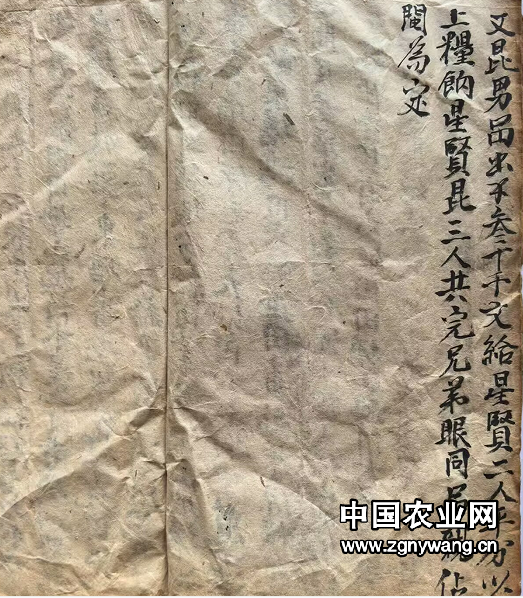 又昆男出钱叁千文給星賢二人平分以
上糧餉星賢昆三人共完兄弟眼同占
閹為定
中国农业网
www.zgnywang.cn